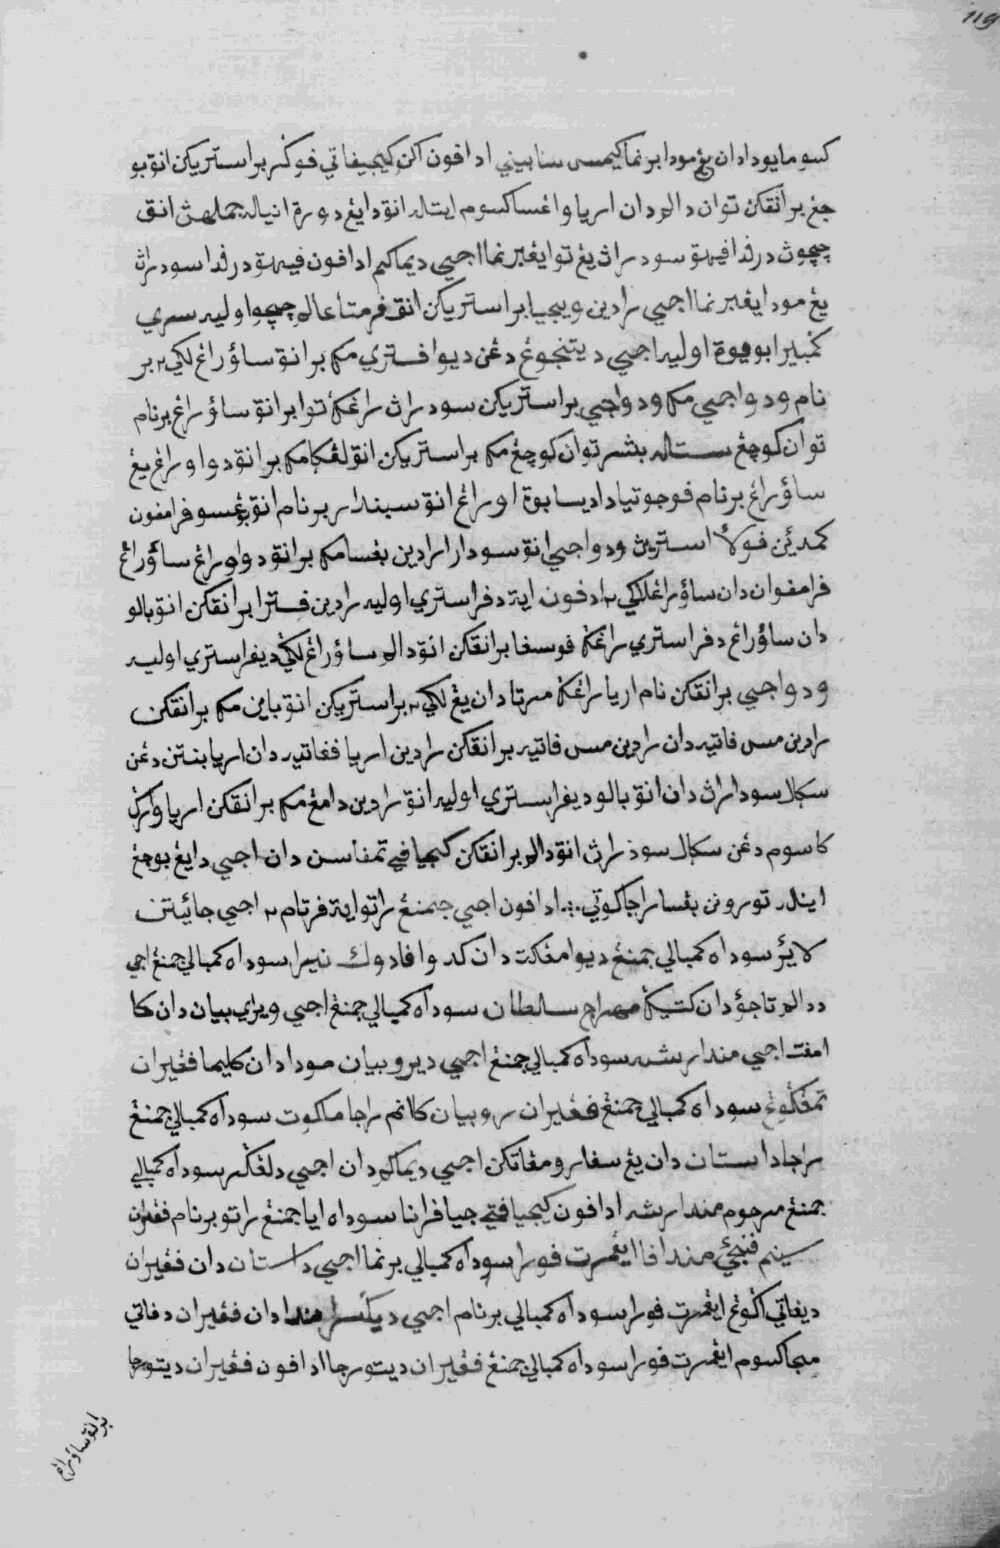 119
كسوما يودا دان يڠ مودا برنما كيمس سنابيني ادافون اكن كيجيڤاتي ڤوكر براسترِيكن انق بو
جڠ برانقكن توان دالم دان اريا واڠسا كسوم ايتله انق دايڠ دورة انياله جملهڽ انق
چچوڽ درڤدا ڤيهق سودراڽ يڠ توا ايڠ برنما اجي ديماكم ادافون ڤيهق درڤدا سودراڽ
يڠ مودا ايڠ برنما اجي رادين ويجيا براسترِيكن انق ڤرمتا عالم چوچو اوليه سري
كمبيرا بوميوة اوليه اجي ديتنجوڠ دڠن ديوا ڤتري مك برانق ساؤراڠ لكي٢ بر
نام ودو اجي مك ودو اجي براسترِيكن سودراڽ راڠݢ توا برانق ساؤراڠ برنام
توان كوچڠ ستله بسر توان كوچڠ مك براسترِيكن انق لڠݢا مك برانق دوا اورڠ يڠ
ساؤراڠ برنام ڤوجو تيادا ديسابوة اورڠ انق سبندار برنام انق بوڠسو ڤرامڤون
كمدين ڤولا استريڽ ودو اجي انق سودارا رادين بڠسا مك برانق دوا اورڠ ساؤراڠ
ڤرامڤوان دان ساؤراڠ لكي٢ ادڤون ايت دڤراستري اوليه رادين ڤترا برانقكن انق بالو
دان ساؤراڠ دڤراستري راڠݢ ڤوسڤا برانقكن انق دالم ساؤراڠ لكي ديڤراستري اوليه
ودو اجي برانقكن نام اريا راڠݢ مرتا دان يڠ لكي٢ براسترِيكن انق باين مك برانقكن
رادين مس ڤاتيه دان رادين مس ڤاتيه برانقكن رادين اريا ڤڠاتيه دان اريا بنتن دڠن
سݢل سوداراڽ دان انق بالو ديڤراستري اوليه انق رادين دامڠ مك برانقكن اريا وݢرڽ
كاسوم دڠن سݢل سودراڽ انق دالم برانقكن كيجيا ڤي تمڤاسن دان اجي دايڠ بوجڠ
اينله تورونن بڠسا راج كوتي ∴ ادافون اجي جمنڠ راتو ايت ڤرتام٢ اجي جائيتن
لاير سوداه كمبالي جمنڠ ديوا مڠكت دان كدوا ڤادوك نيرا سوداه كمبالي جمنڠ اجي
ددالم تاجؤ دان كتيݢ مهراج سلطان سوداه كمبالي جمنڠ اجي ويراي بيان دان كا
امڤت اجي مندارشه سوداه كمبالي جمنڠ اجي ديرو بيان مودا دان كليما ڤڠيران
تمڠݢوڠ سوداه كمبالي جمنڠ ڤڠيران رو بيان كاانم راجا مكوت سوداه كمبالي جمنڠ
راجا داستان دان يڠ سڤارو مڠاتكن اجي ديماكم دان اجي دلڠݢر سوداه كمبالي
جمنڠ مرحوم مندارشه ادافون كيجيا ڤتي جيا ڤرانا سوداه ايا جمنڠ راتو برنام ڤڠيران
سينم ڤنجي مندافا ايڠمرت ڤورا سوداه كمبالي برنما اجي داستان دان ڤڠيران
ديڤاتي اݢوڠ ايڠمرت ڤورا سوداه كمبالي برنام اجي ديݢسر مندا دان ڤڠيران دڤاتي
مجاكسوم ايڠمرت ڤورا سوداه كمبالي جمنڠ ڤڠيران ديتورجا ادافون ڤڠيران ديتورجا
برانق ساؤراڠ